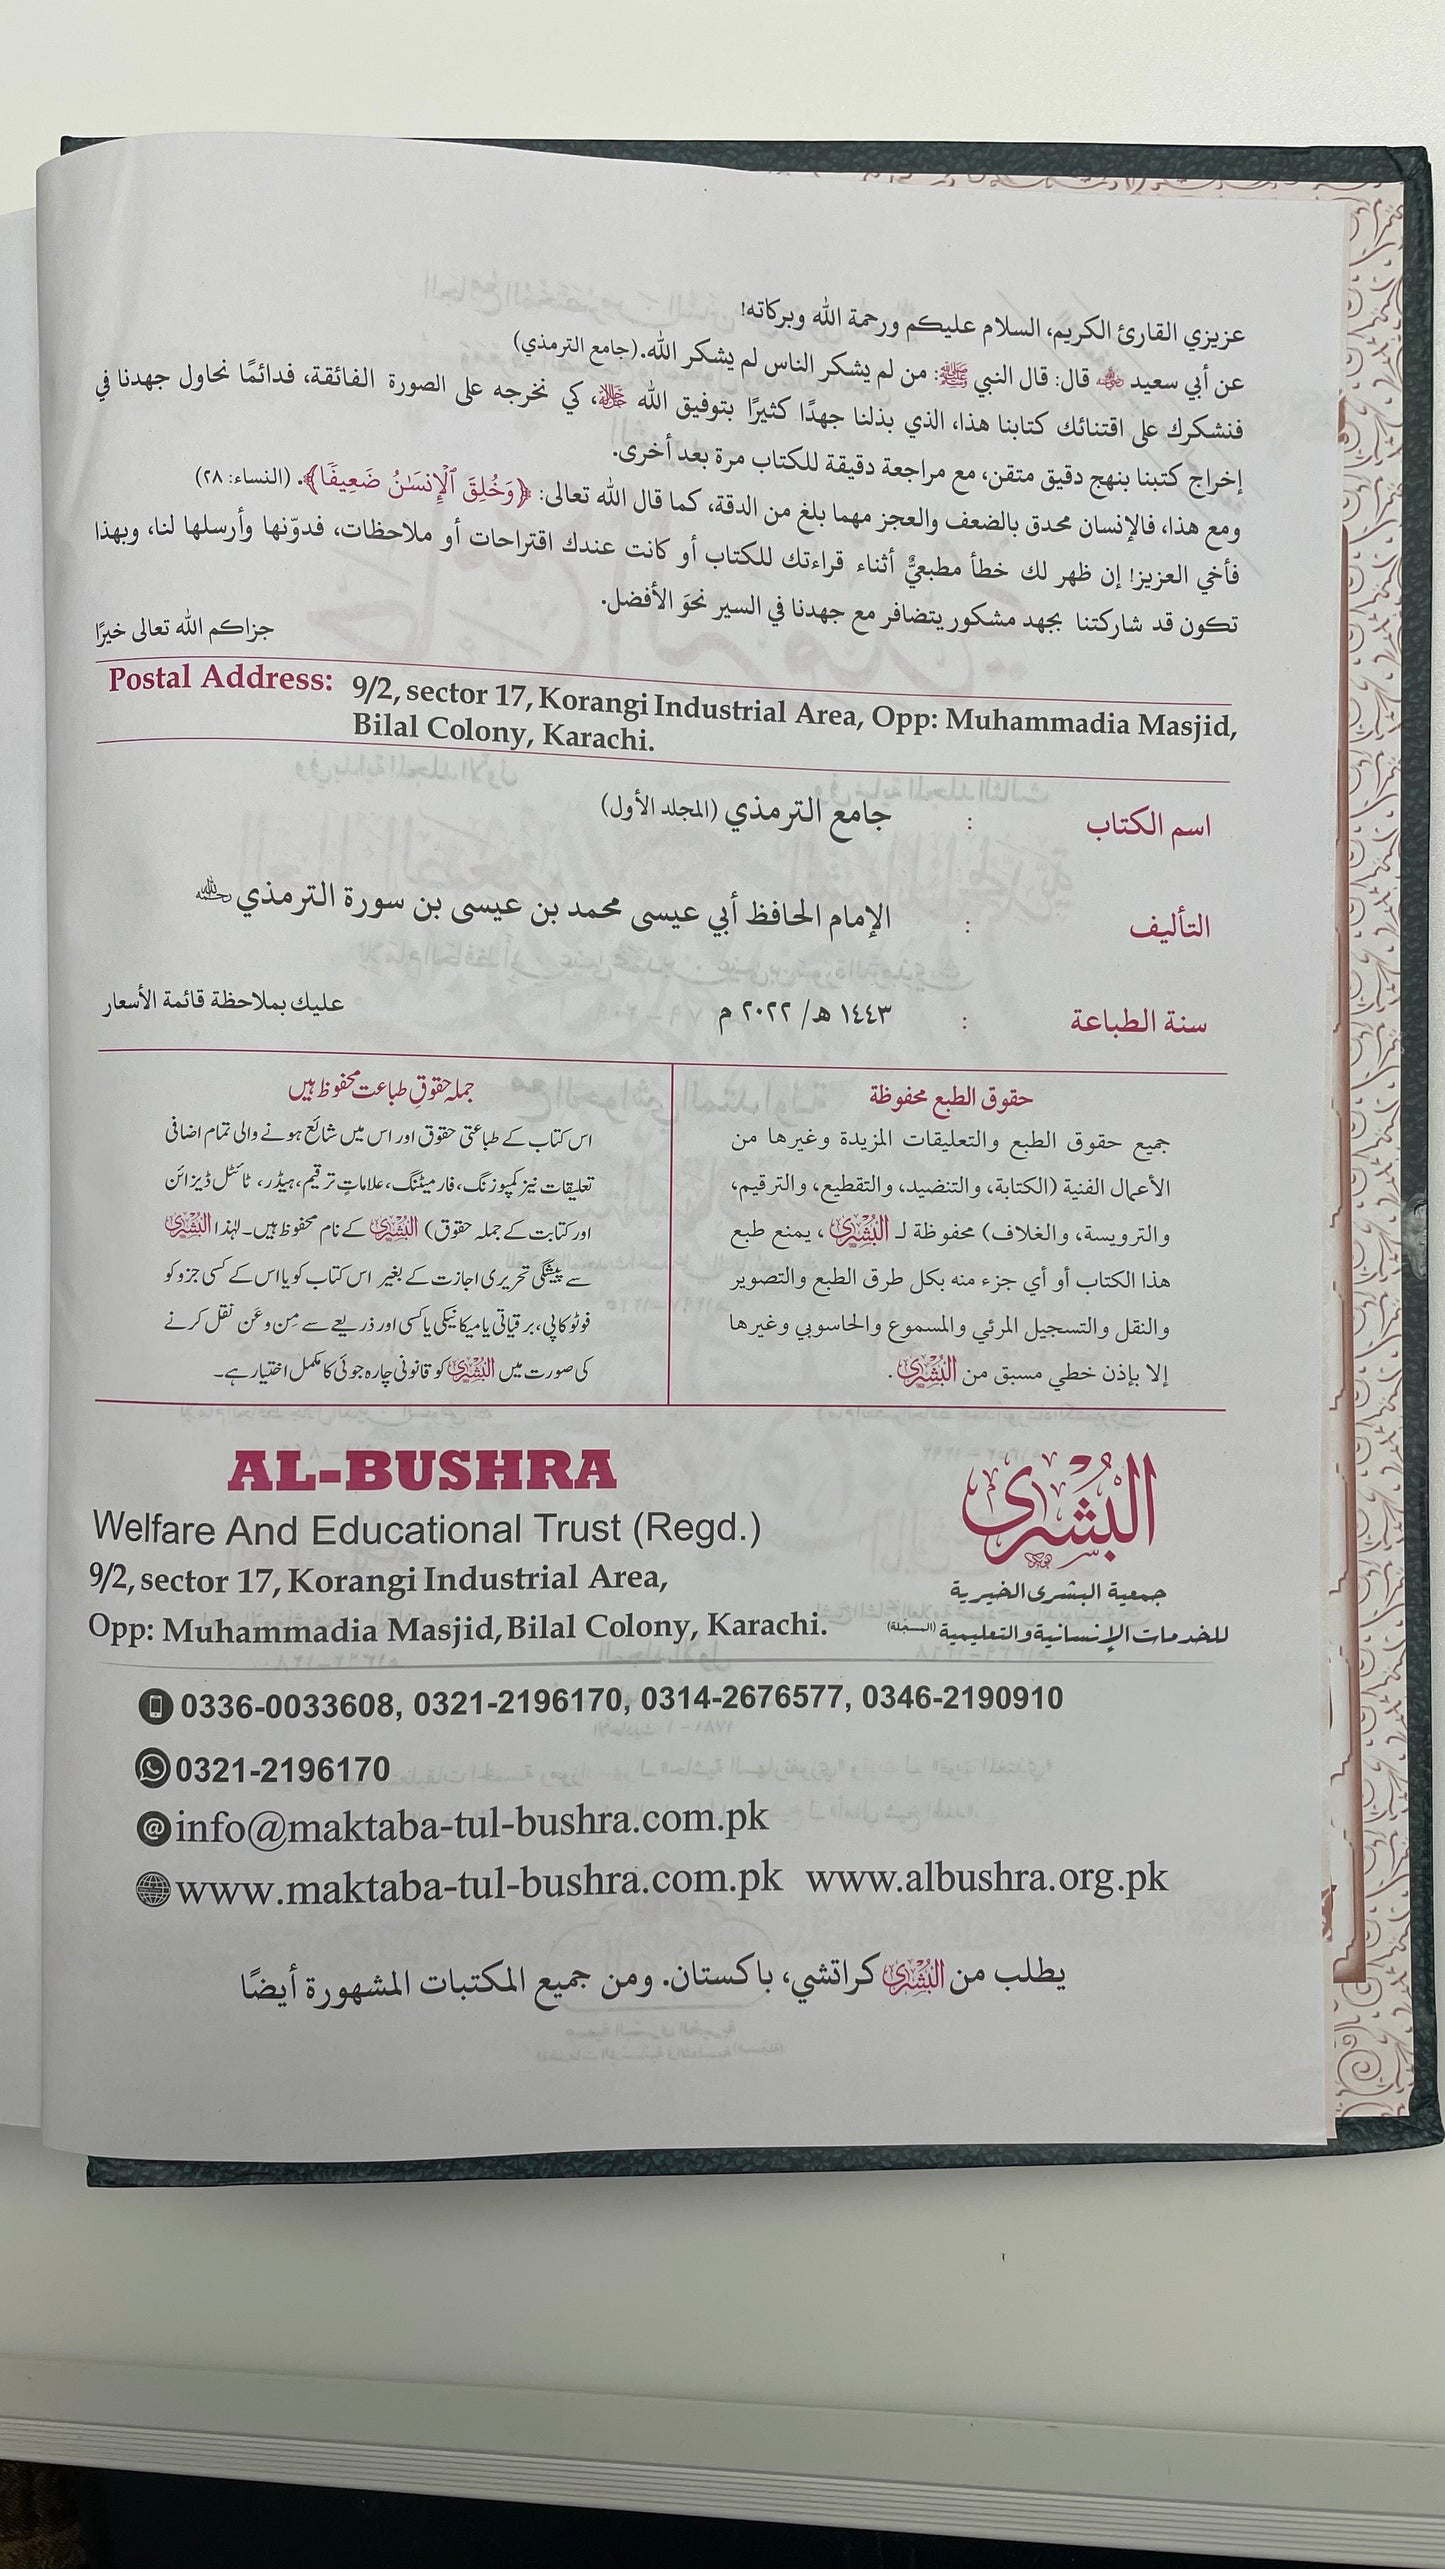 عزيزي القارئ الكريم، السلام عليكم ورحمة الله وبركاته!
عن أبي سعيد رضي الله عنه قال: قال النبي ﷺ: من لم يشكر الناس لم يشكر الله. (جامع الترمذي)
فنشكرك على اقتنائك كتابنا هذا، الذي بذلنا جهدًا كثيرًا بتوفيق الله ﷻ، كي نخرجه على الصورة الفائقة، فدائمًا نحاول جهدنا في
إخراج كتبنا بنهج دقيق متقن، مع مراجعة دقيقة للكتاب مرة بعد أخرى.
ومع هذا، فالإنسان محدق بالضعف والعجز مهما بلغ من الدقة، كما قال الله تعالى: ﴿وَخُلِقَ ٱلْإِنسَـٰنُ ضَعِيفًا﴾. (النساء: ٢٨)
فأخي العزيز! إن ظهر لك خطأ مطبعيٌّ أثناء قراءتك للكتاب أو كانت عندك اقتراحات أو ملاحظات، فدوّنها وأرسلها لنا، وبهذا
تكون قد شاركتنا بجهد مشكور يتضافر مع جهدنا في السير نحوَ الأفضل.
جزاكم الله تعالى خيرًا
Postal Address: 9/2, sector 17, Korangi Industrial Area, Opp: Muhammadia Masjid,
Bilal Colony, Karachi.
اسم الكتاب : جامع الترمذي (المجلد الأول)
التأليف : الإمام الحافظ أبي عيسى محمد بن عيسى بن سورة الترمذي رحمه الله
سنة الطباعة : ١٤٤٣ هـ/ ٢٠٢٢ م عليك بملاحظة قائمة الأسعار
حقوق الطبع محفوظة
جميع حقوق الطبع والتعليقات المزيدة وغيرها من
الأعمال الفنية (الكتابة، والتنضيد، والتقطيع، والترقيم،
والترويسة، والغلاف) محفوظة لـ البُشْرى، يمنع طبع
هذا الكتاب أو أي جزء منه بكل طرق الطبع والتصوير
والنقل والتسجيل المرئي والمسموع والحاسوبي وغيرها
إلا بإذن خطي مسبق من البُشْرى.
جملہ حقوقِ طباعت محفوظ ہیں
اس کتاب کے طباعتی حقوق اور اس میں شائع ہونے والی تمام اضافی
تعلیقات نیز کمپوزنگ، فارمیٹنگ، علاماتِ ترقیم، ہیڈر، ٹائٹل ڈیزائن
اور کتابت کے جملہ حقوق) البُشْرى کے نام محفوظ ہیں۔ لہٰذا البُشْرى
سے پیشگی تحریری اجازت کے بغیر اس کتاب کو یا اس کے کسی جزو کو
فوٹو کاپی، برقیاتی یا میکانیکی یا کسی اور ذریعے سے مِن وعَن نقل کرنے
کی صورت میں البُشْرى کو قانونی چارہ جوئی کا مکمل اختیار ہے۔
AL-BUSHRA
Welfare And Educational Trust (Regd.)
9/2, sector 17, Korangi Industrial Area,
Opp: Muhammadia Masjid, Bilal Colony, Karachi.
البُشْرى
جمعية البشرى الخيرية
للخدمات الإنسانية والتعليمية (المسجّلة)
0336-0033608, 0321-2196170, 0314-2676577, 0346-2190910
0321-2196170
info@maktaba-tul-bushra.com.pk
www.maktaba-tul-bushra.com.pk www.albushra.org.pk
يطلب من البُشْرى كراتشي، باكستان. ومن جميع المكتبات المشهورة أيضًا